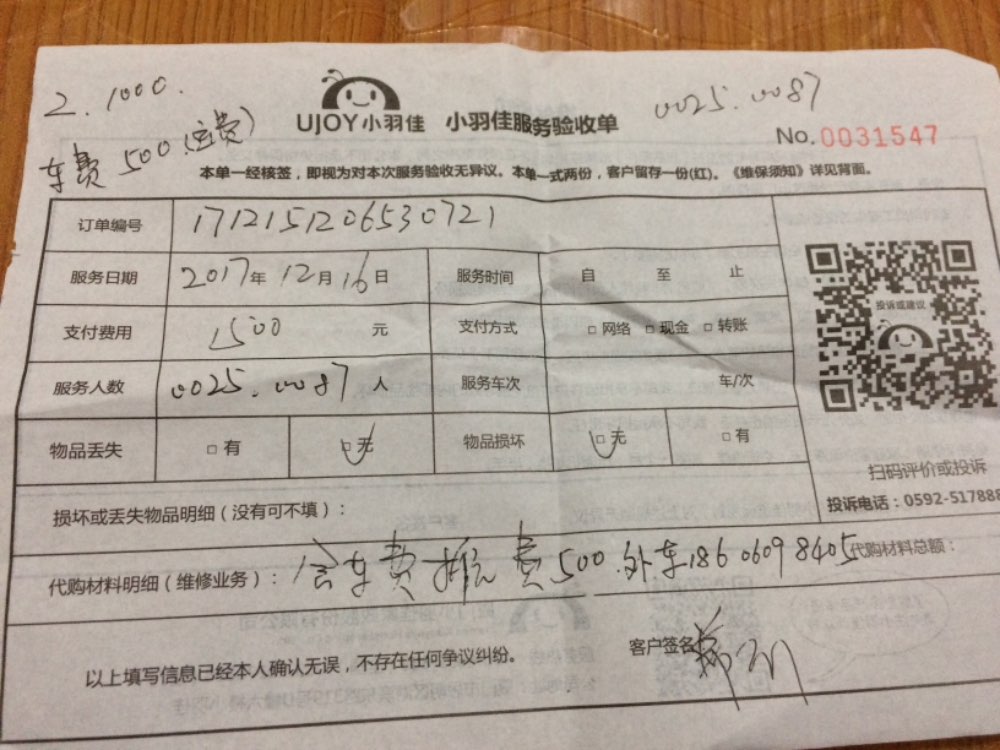 2. 1000.
0025.0087
UJOY小羽佳 小羽佳服务验收单
No. 0031547
车费 500 (运费)
本单一经核签，即视为对本次服务验收无异议。本单一式两份，客户留存一份(红)。《维保须知》详见背面。
订单编号 1712151206530721
服务日期 2017年 12月16日 服务时间 自 至 止
支付费用 1500 元 支付方式 □ 网络 □ 现金 □ 转账
投诉或建议
服务人数 0025.0087 人 服务车次 车/次
物品丢失 □ 有 □ 无 物品损坏 □ 无 □ 有
扫码评价或投诉
损坏或丢失物品明细（没有可不填）：
投诉电话：0592-517888
代购材料明细（维修业务）： 含车费 费500.外车18606098405 代购材料总额：
客户签名
以上填写信息已经本人确认无误，不存在任何争议纠纷。